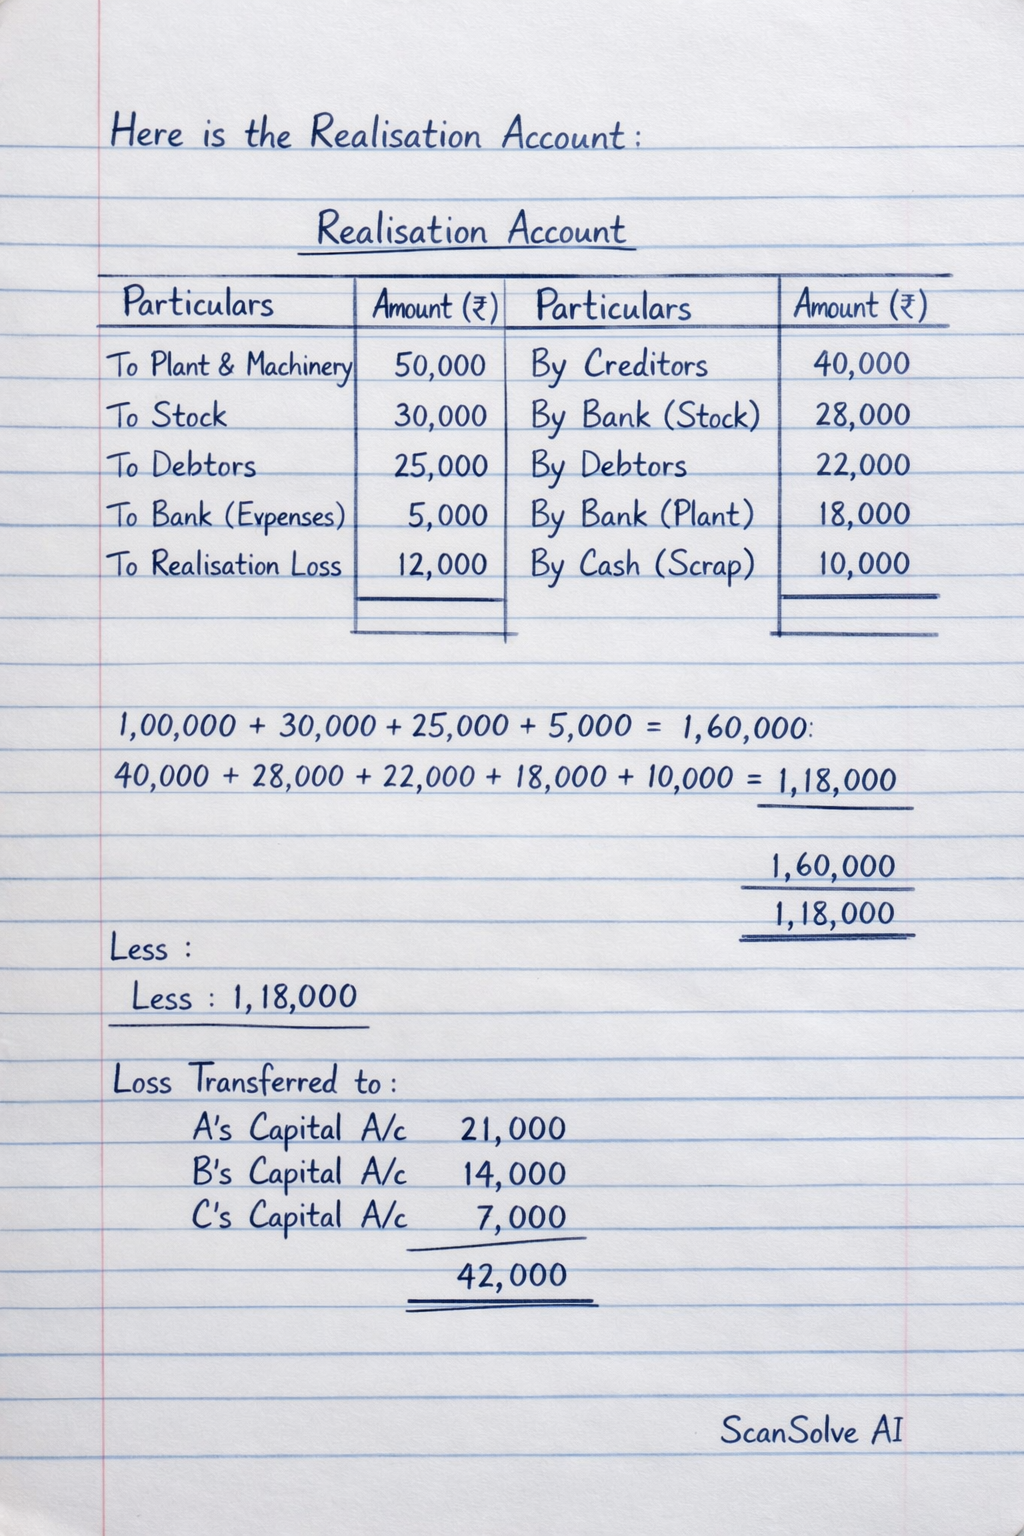 Here is the Realisation Account:
Realisation Account
Particulars Amount (₹) Particulars Amount (₹)
To Plant & Machinery 50,000 By Creditors 40,000
To Stock 30,000 By Bank (Stock) 28,000
To Debtors 25,000 By Debtors 22,000
To Bank (Expenses) 5,000 By Bank (Plant) 18,000
To Realisation Loss 12,000 By Cash (Scrap) 10,000
1,00,000 + 30,000 + 25,000 + 5,000 = 1,60,000:
40,000 + 28,000 + 22,000 + 18,000 + 10,000 = 1,18,000
1,60,000
1,18,000
Less :
Less : 1,18,000
Loss Transferred to :
A's Capital A/c 21,000
B's Capital A/c 14,000
C's Capital A/c 7,000
42,000
ScanSolve AI